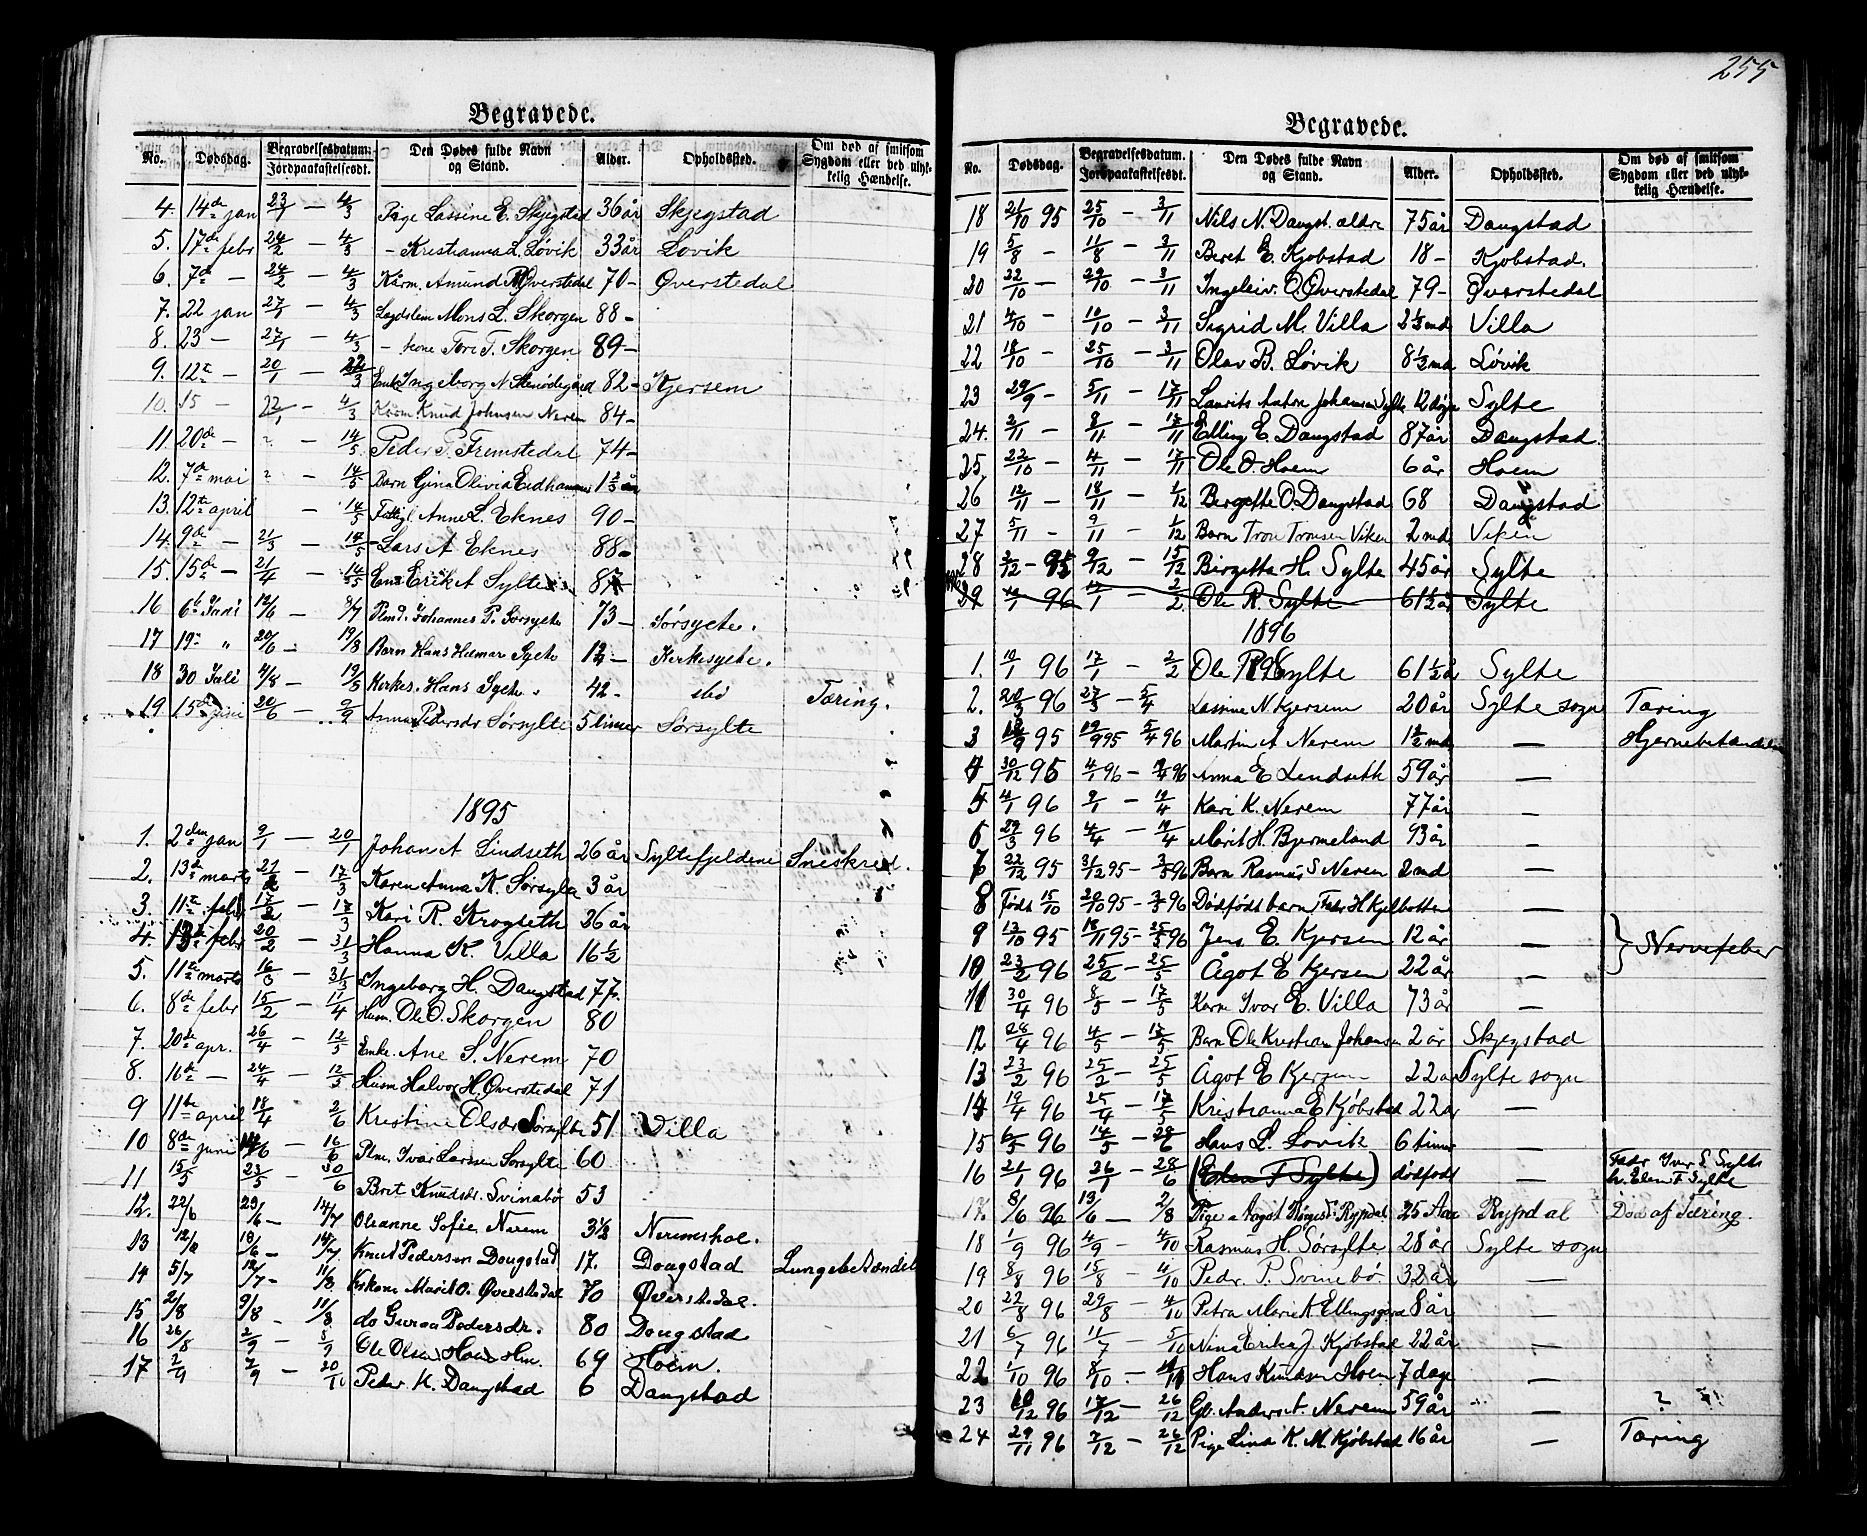 255
Begravede.
No. Dødsdag. Begravelsesdatum. Jordpaakastelsesdt. Den Dødes fulde Navn og Stand. Alder. Opholdssted. Om død af smitsom Sygdom eller ved ulykkelig Hændelse.
4. 14de jan 23/1 – 4/3 Pige Lassine E. Skjegstad 36 år Skjegstad
5. 17de febr 24/2 – 4/3 – Kristianna L. Løvik 33 år Lovik
6. 7de – 24/2 – 4/3 Kårm. Amund Øverstedal 70 – Øverstedal
7. 22 jan 27/1 – 4/3 Mons L. Skorgen 88 –
8. 23 – 27/1 – 4/3 – kone Tori T. Skorgen 89 –
9. 12te – 20/1 – Enke Ingeborg N 82 – Kjersem
10. 15 – 22/1 – 4/3 Kårm Knud Johnsen Nerem 84 –
11. 20de – " – 14/5 Peder P. Fremstedal 74 –
12. 7de mai " – 14/5 Barn Gina Olivia Eidhammer
13. 12te april – 14/5 Anne L. Eknes 90 –
14. 9de – 21/3 – 14/5 Lars A Eknes 88 –
15. 15de – 21/4 – 14/5 Erik A Sylte
16 6te Juni 12/6 – 8/7 Johannes P. Sørsylte 73 – Sørsylte.
17 19de " 20/6 – 19/8 Barn Hans Hilmar Sylte Kirkesylte.
18 30 Juli 4/8 – Kirkes. Hans Sylte. 42 – ibid Tæring.
19 15de juni 20/6 – 2/9 Anna Pedersdr Sørsylte 5 timer Sørsylte
1895
1. 2den jan 9/1 – 20/1 Johan A Lindseth 26 år Syltefjeldene Sneskred.
2. 13de marts – 17/3 Karen Anna K. Sørsylte 3 år
3. 11te febr 17/2 – 17/3 Kari R. Krogseth 26 år
4. febr 20/2 – 31/3 Hanna K. Villa 16 1/2
5. 11te marts 16/3 – 31/3 Ingeborg H. Daugstad 77.
6. 8de febr 15/2 – 17/4 Husm. Ole O. Skorgen 80
7. 20de apr. 26/4 – 12/5 Enke. Ane S. Nerem 70
8. 16de – 24/4 – 12/5 Husm Halvor H. Øverstedal 71
9 11te april 18/4 2/6 Kristine Olsdr Sørsylte 51 Villa
10 8de juni – 16/6 Plm. Ivar Larssen Sørsylte 60
11 15/5 23/5 – 30/6 Brit Knudsdr. Svinabø 53
12. 22/6 29/6 – 14/7 Olianne Sofie Nerem 3 1/2 Neremshol.
13 – 14/7 Knut Pedersen Dougstad 17. Dougstad Lungebetændel
14 5/7 12/7 – 11/8 Marit O. Øverstedal 70 Øverstedal.
15 2/8 9/8 – 11/8 do Guroa Pedersdr. 80 Dougstad
16 26/8 2/9 8/9 Ole Olsen Hoem Hm. 69 Hoem.
17 2/9 7/9 – 20/10 Peder K. Daugstad 6 Daugstad
Begravede.
No. Dødsdag. Begravelsesdatum. Jordpaakastelsesdt. Den Dødes fulde Navn og Stand. Alder. Opholdssted. Om død af smitsom Sygdom eller ved ulykkelig Hændelse.
18 21/10 95 25/10 – 3/11 Nils N. Daugst. ældre 75 år Daugstad
19 5/8 – 11/8 – 3/11 Beret E. Kjobstad 18 – Kjobstad.
20 22/10 – 29/10 – 3/11 Ingeleiv O. Øverstedal 79 – Øverstedal
21 4/10 – 10/10 – 3/11 Sigrid M. Villa 2 1/2 md Villa
22 18/10 – 25/10 – 3/11 Olav B. Løvik 8 1/2 md Løvik
23 29/9 – 5/11 – 17/11 Laurits Anton Johansen Sylte 12 døgn Sylte
24. 2/11 – 8/11 – 17/11 Elling E. Daugstad 87 år Daugstad.
25. 22/10 – 4/11 – 17/11 Ole O. Hoem 6 år Hoem
26 12/11 – 18/11 – 1/12 Bergitte O. Daugstad 68 Daugstad
27 5/11 – 9/11 – 1/12 Barn Tron Tronsen Viken 2 md Viken
28 2/12 – 95 9/12 – 15/12 Birgitta H. Sylte 45 år Sylte
29 10/1 96 17/1 – 2/2 Ole R. Sylte 61 1/2 år Sylte
1896
1. 10/1 96 17/1 – 2/2 Ole R. Sylte 61 1/2 å Sylte
2. 96 27/3 – 5/4 Lassine N. Kjersem 20 år Sylte sogn Tæring
3 95 19/9 95 5/4 96 Martin A Nerem 1 1/2 md — Hjernebetændelse
4 30/12 95 4/1 96 – 96 Anna E Lindseth 59 år —
5 4/1 96 9/1 – Kari K. Nerem 77 år —
6 29/3 96 4/4 – Marit H. Bjermeland 93 år —
7 22/12 95 31/12 95 – 3/5 96 Barn Rasmus S Nerem 2 md —
8 Født 15/10 20/10 95 – 3/5 96 Dødfødt barn Fader H Kjelbotten
9 13/10 95 95 – 25/5 96 Jens E. Kjersem 12 år — } Nervefeber
10 23/2 96 25/2 – 25/5 Ågot E Kjersem 22 år —
11 30/4 96 8/5 – 17/5 Kårm Ivar E. Villa 73 år —
12 28/4 96 4/5 – 17/5 Barn Ole Kristian Johansen 2 år Skjegstad
13 23/2 96 25/2 – 25/5 Ågot E Kjersem 22 år Sylte sogn
14 19/4 96 25/4 – 17/5 Kristianna E Kjøbstad 22 år —
15 6/5 96 14/5 – 28/6 Hans L. Lovik 6 timer —
16 21/1 96 26/1 – 28/6 (Elen T Sylte) dødfødt — Fader Iver L Sylte
M. Elen T Sylte
17. 8/6 96 13/6 – 2/8 Pige Aagot Rypdal 25 Aar Rypdal Død af Tæring.
18 1/9 96 4/9 – 4/10 Rasmus H. Sørsylte 28 år Sylte sogn
19 8/8 96 15/8 – 4/10 Pedr. P. Svinebø 32 år —
20 22/8 96 29/8 – 4/10 Petra Marie K Ellingsgård 8 år —
21 6/7 96 11/7 – 5/10 Nina Erika J Kjøbstad 22 år —
22 1/10 96 8/10 – Hans Knudsen Hoem 7 dage —
23 96 17/12 – 26/12 Go. Anders A. Nerem 59 år — ?
24 29/11 96 7/12 – 26/12 Pige Lina K. M. Kjøbstad 16 år — Tæring